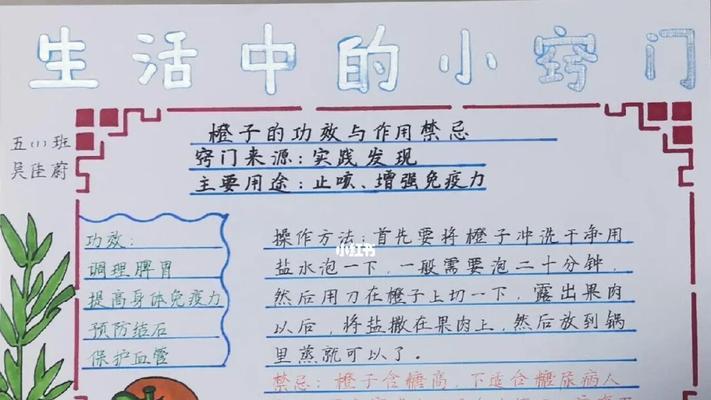 生活中的小窍门
五(1)班
吴佳蔚
橙子的功效与作用禁忌
窍门来源:实践发现
主要用途:止咳、增强免疫力
功效:
调理脾胃
提高身体免疫力
预防结石
保护血管
操作方法:首先要将橙子冲洗干净用
盐水泡一下,一般需要泡二十分钟,
然后用刀在橙子上切一下,露出果肉
以后,将盐撒在果肉上,然后放到锅
里蒸就可以了。
小红书
禁忌:橙子含糖高,下适合糖尿病人